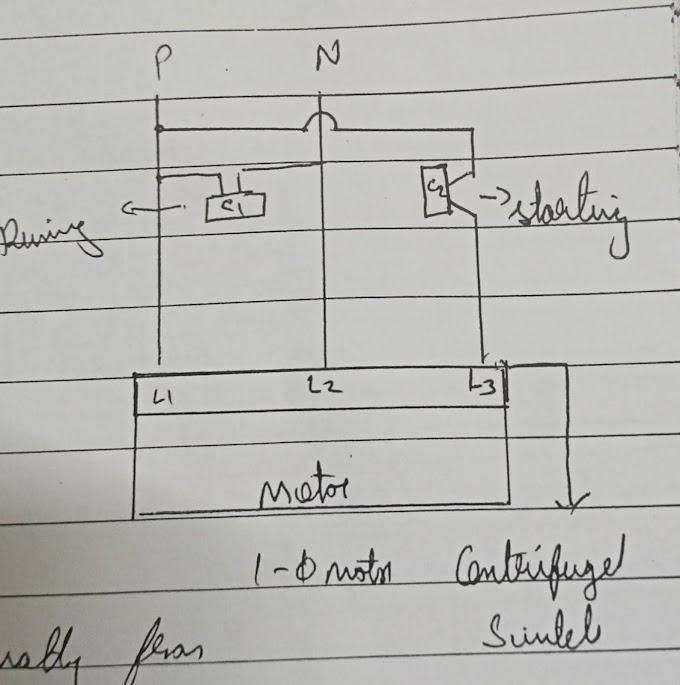 P N
C1
C2
Runing
starting
L1 L2 L3
Motor
1-Φ motor Centrifugel